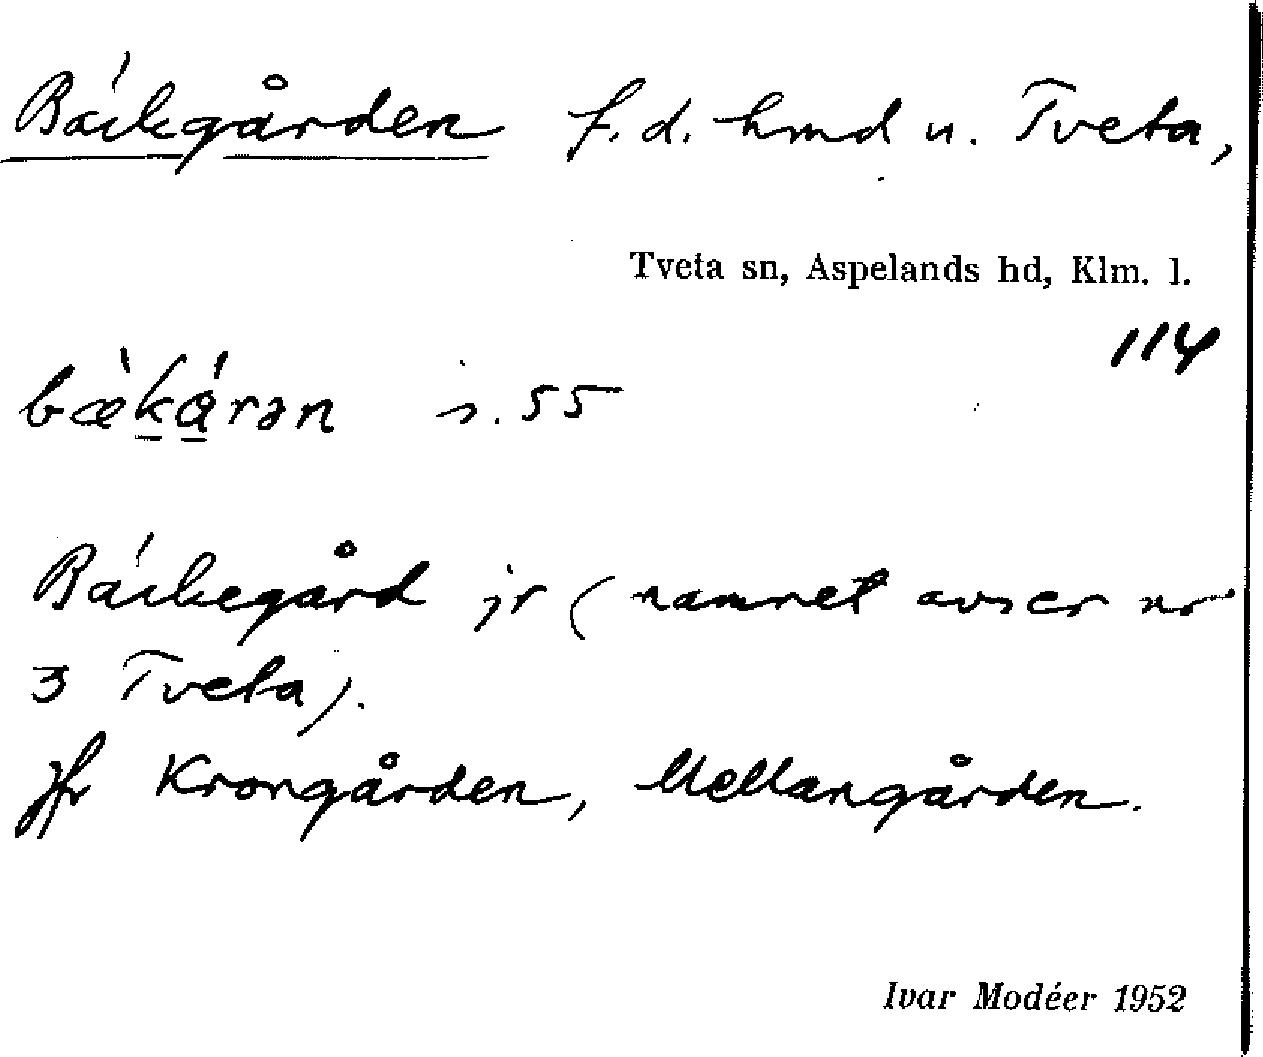 Bäckgården f.d. hmd u. Tveta,
Tveta sn, Aspelands hd, Klm. l.
114
bæ̀kɑ́rən s. 55
Bäckegård jr (namnet avser nr
3 Tveta).
Jfr Krongården, Mellangården.
Ivar Modéer 1952